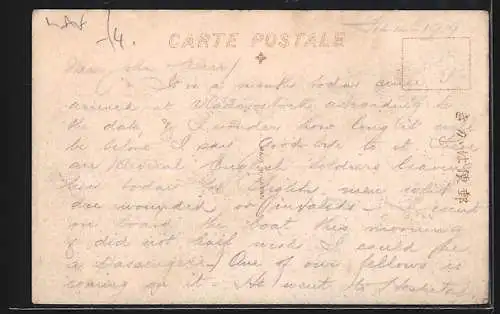 14.
CARTE POSTALE
1919
It is a month today since I
arrived at Vladivostock according to
the date, & I wonder how long it will
be before I say Good-bye to it
are several English soldiers leaving
here today or
are wounded or invalids - I went
on board the boat this morning
& did not half wish I could be
a passenger. One of our fellows is
coming on it - He went to Hospital
きかは便郵